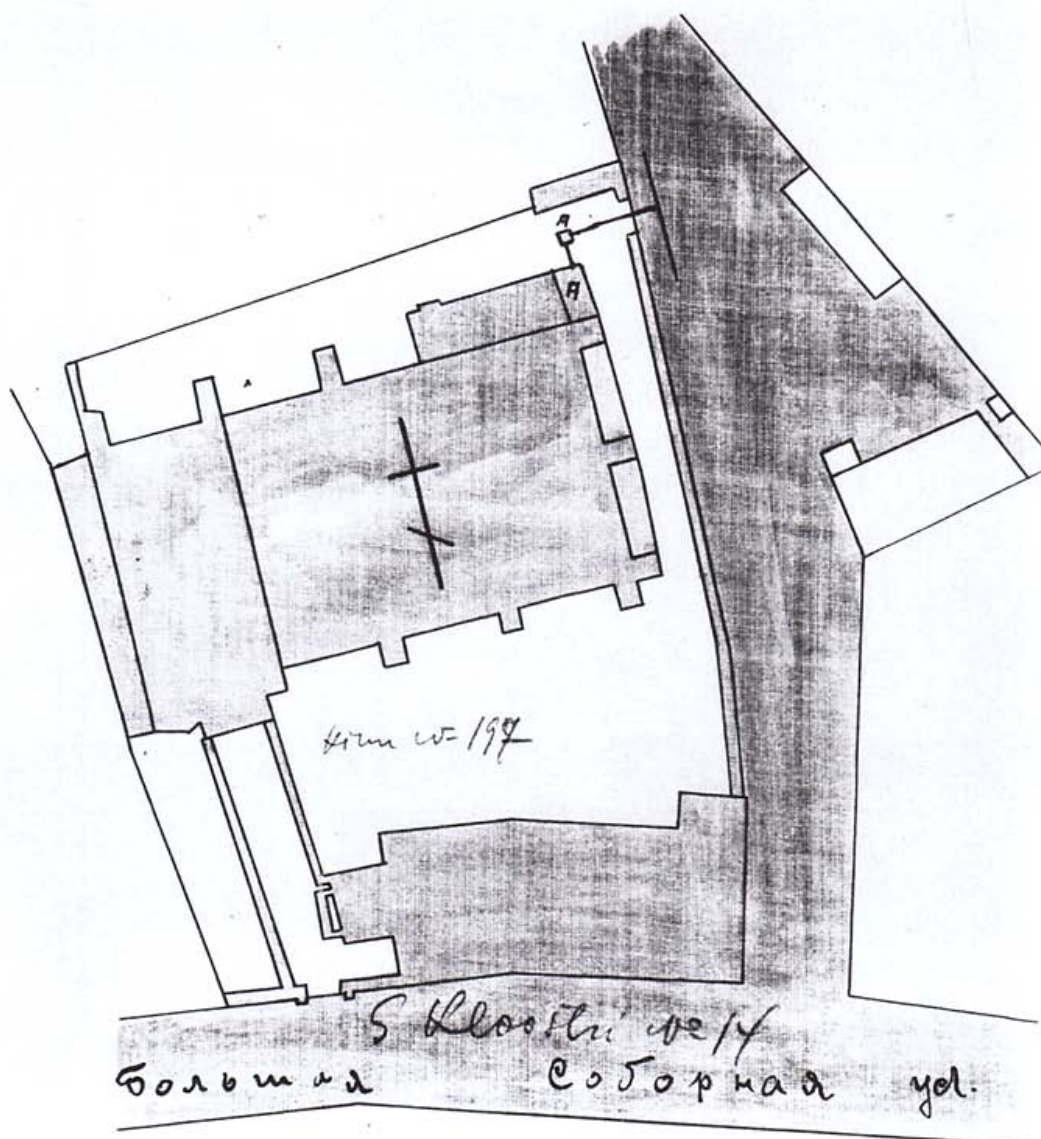 А
А
kinn № 197
S Kloostri № 14
Большая Соборная ул.